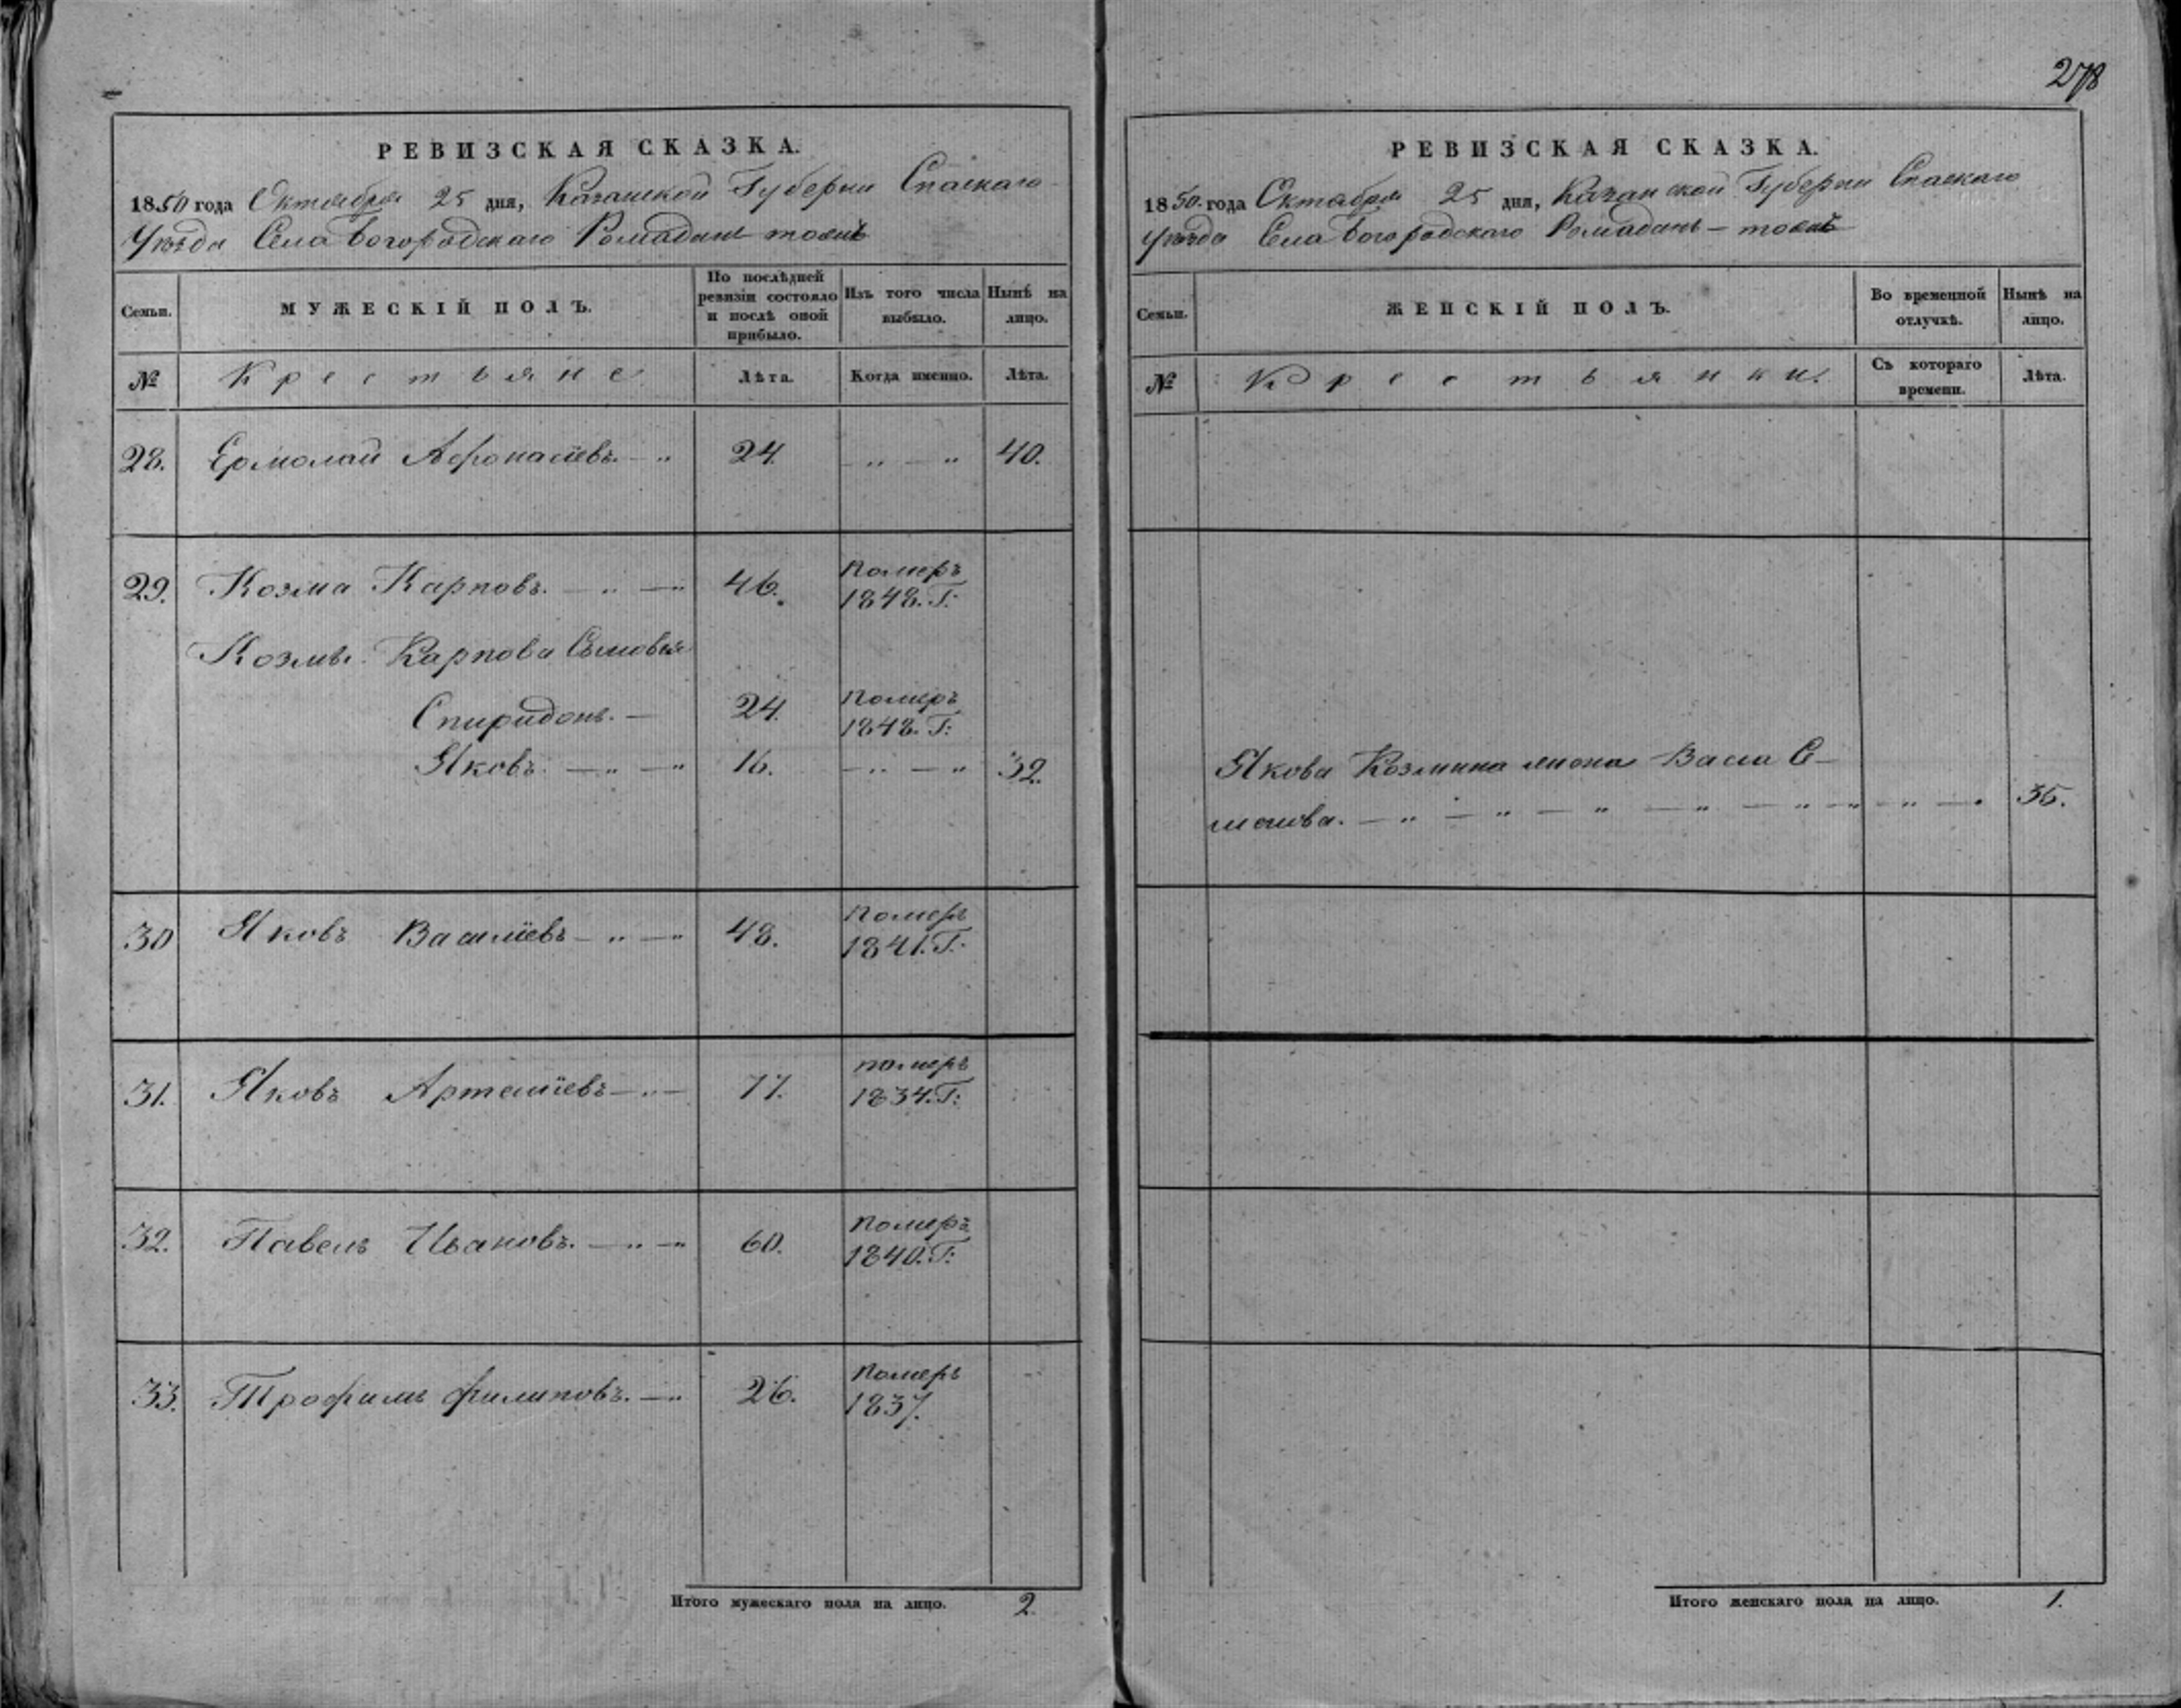 278
РЕВИЗСКАЯ СКАЗКА.
1850 года Октября 25 дня, Казанской Губерніи Спаскаго
Уѣзда Села Богородскаго Ромадань тожъ
Семьи. МУЖЕСКІЙ ПОЛЪ. По послѣдней ревизіи состояло и послѣ оной прибыло. Изъ того числа выбыло. Нынѣ на лицо.
№ Крестьяне Лѣта. Когда именно. Лѣта.
28. Ермолай Афонасіевъ 24. 40.
29. Козма Карповъ. 46. Померъ 1848. Г:
Козмы Карпова Сыновья
Спиридонъ. 24. Померъ 1848. Г:
Яковъ. 16. 32.
30 Яковъ Василіевъ 48. Померъ 1841. Г:
31. Яковъ Артеміевъ 77. померъ 1834. Г:
32. Павелъ Ивановъ. 60. Померъ 1840. Г:
33. Трофимъ Филиповъ. 26. Померъ 1837.
Итого мужескаго пола на лицо. 2.
РЕВИЗСКАЯ СКАЗКА.
1850. года Октября 25 дня, Казанской Губерніи Спаскаго
Уѣзда Села Богородскаго Ромадань – тожъ
Семьи. ЖЕНСКІЙ ПОЛЪ. Во временной отлучкѣ. Нынѣ на лицо.
№ Крестьянки. Съ котораго времени. Лѣта.
Якова Козмина жена Васса С–
менова. 35.
Итого женскаго пола на лицо. 1.